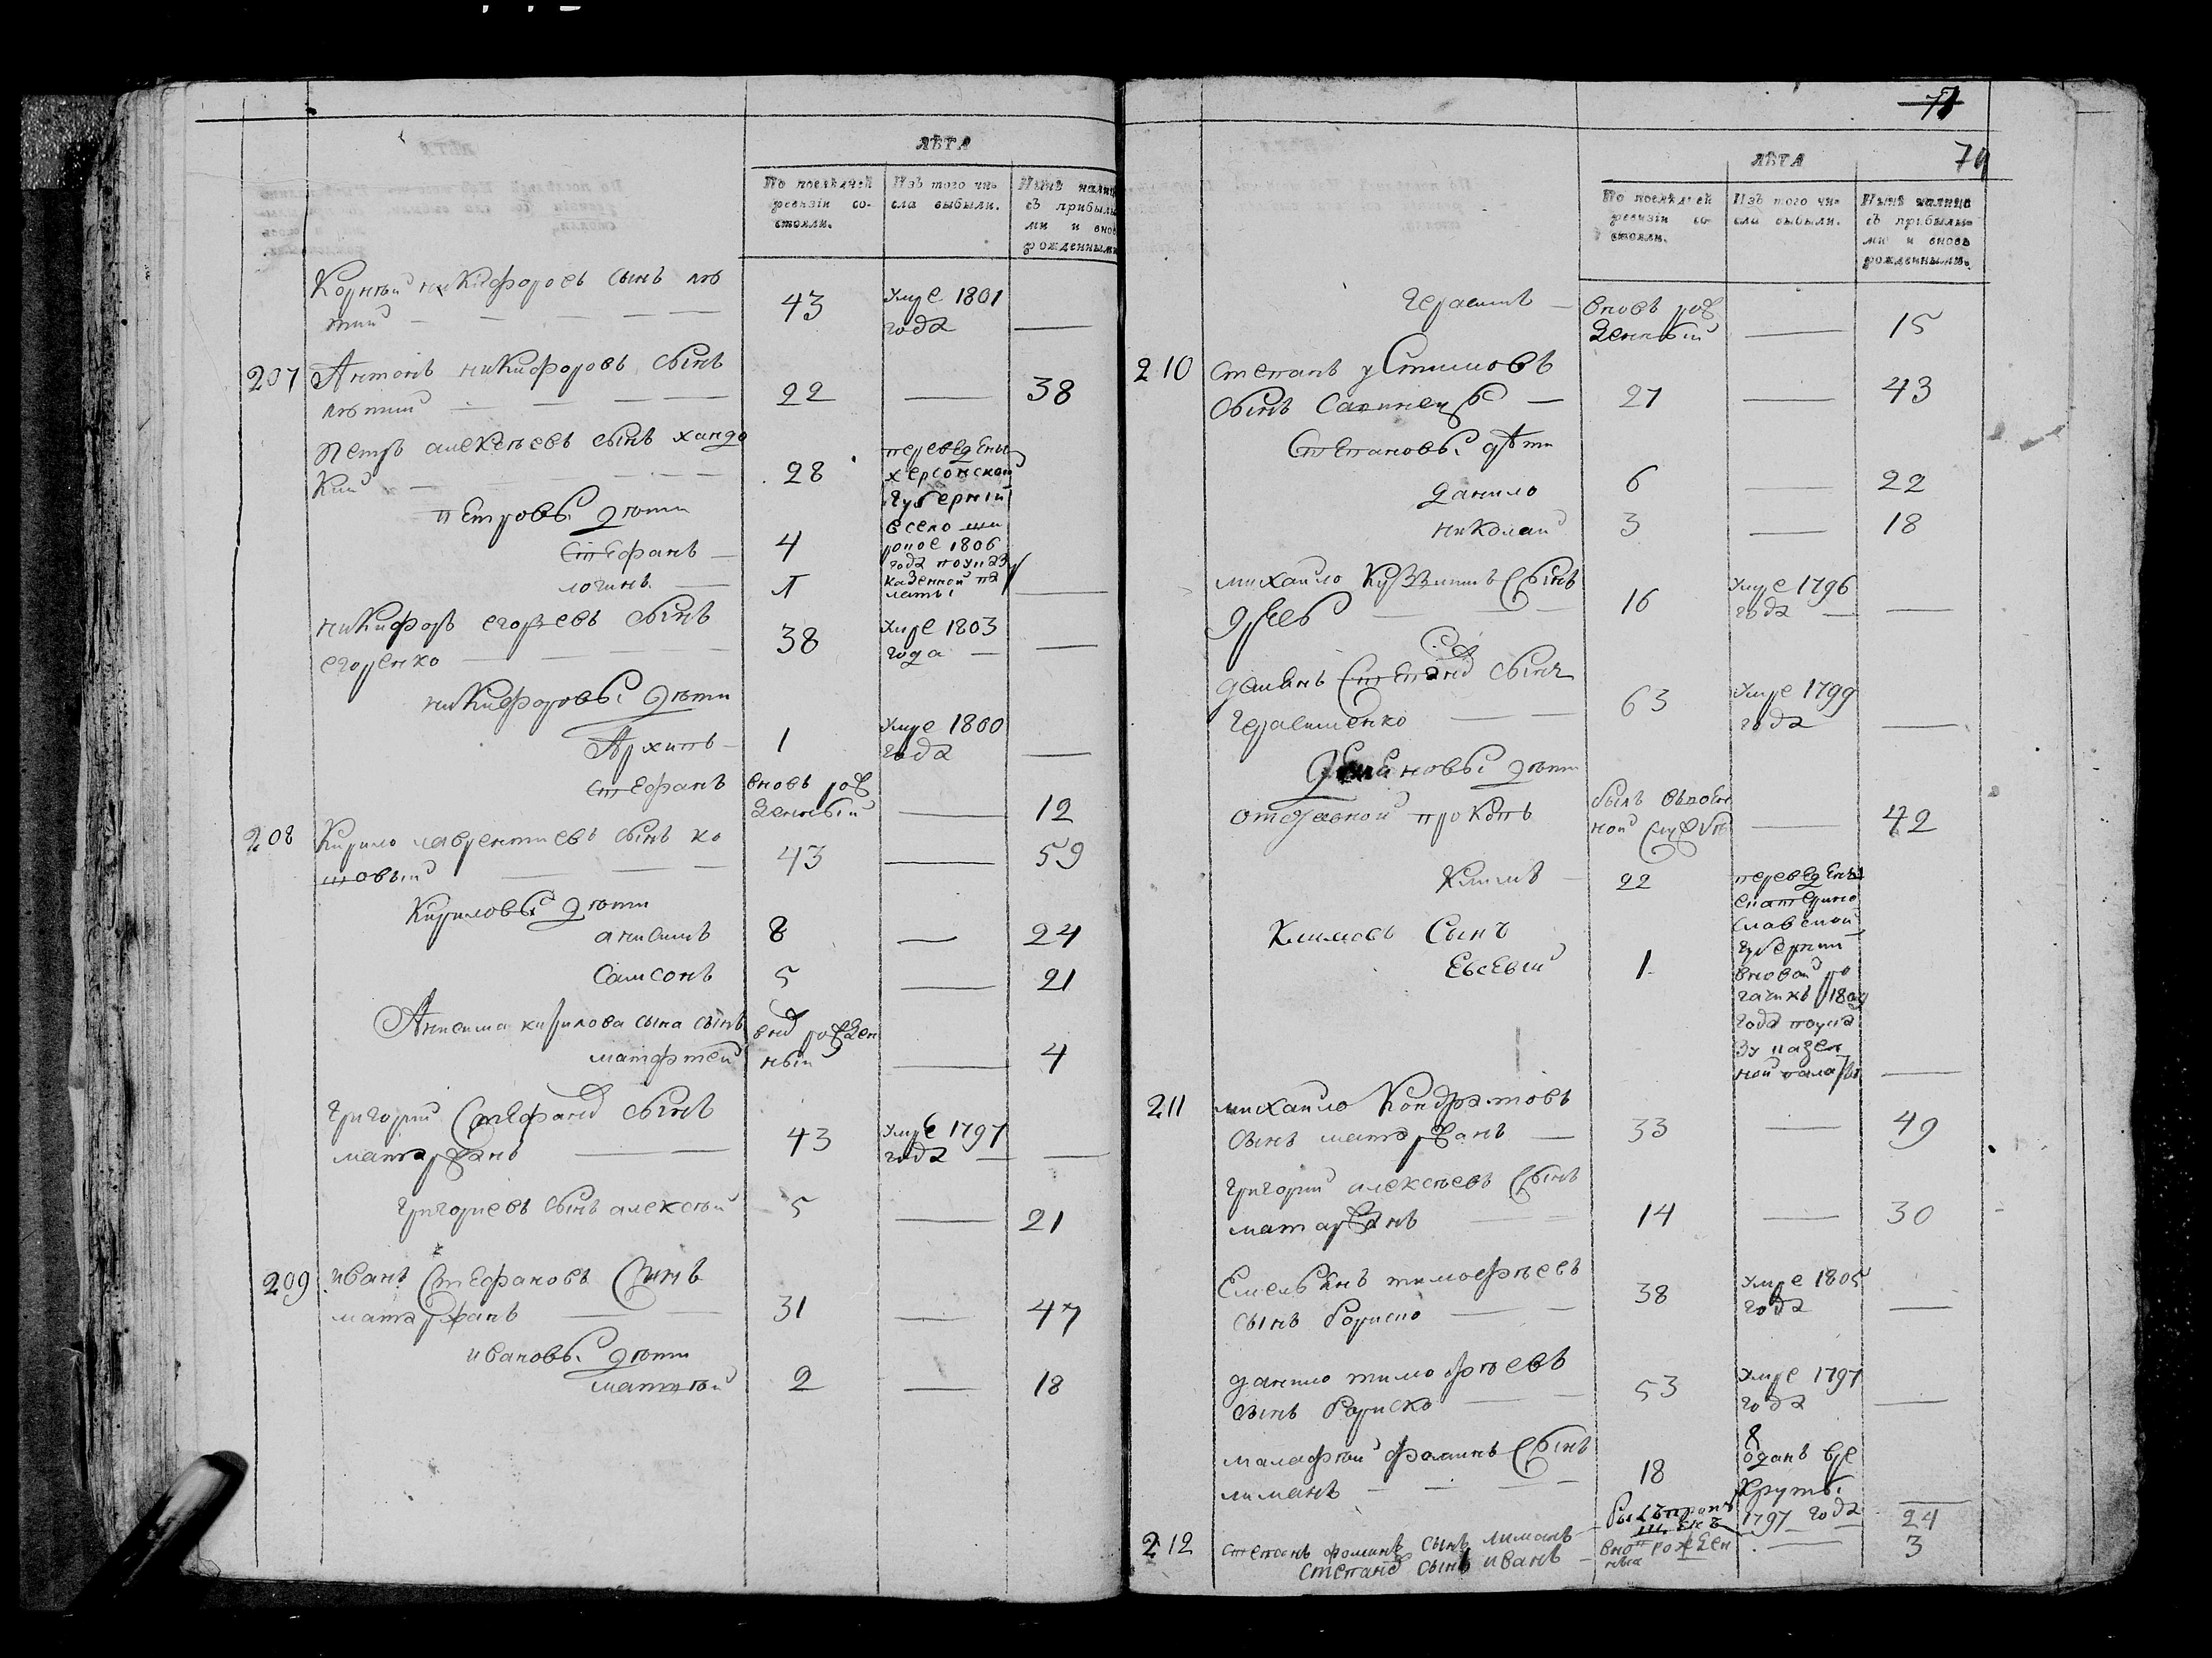 ЛѢТА
По послѣдней ревизіи состояли.
Изъ того числа выбыли.
Нынѣ налиц съ прибылыми и вновь рожденными
Корнѣй никифоровъ сынъ лю
тий 43 умре 1801
года —
207 Антонъ никифоровъ сынъ
лютий 22 — 38
Петръ алексѣевъ сынъ хандо
кий 28
переведены
херсонской
губерній
всело ши
рокое 1806
года поуказу
казенной па
латы —
петровы дѣти
Стефанъ — 4
логинъ — Л
никифоръ егоръевъ сынъ
егоренко 38 умре 1803
года — —
никифоровы дѣти
Архипъ — 1 умре 1800
года —
стефанъ вновь рож
денный — 12
208 Кирило лаврентиевъ сынъ ко
шовый 43 — 59
Кириловы дѣти
анисимъ 8 — 24
Самсонъ 5 — 21
Анисима кирилова сына сынъ
матфтей
внов рожден
ный — 4
Григорий Стефанов сынъ
матаржанъ 43 умре 1797
года — —
григориевъ сынъ алексѣй 5 — 21
209 иванъ Стефановъ Сынъ
матаржанъ 31 — 47
ивановы дѣти
матвѣй 2 — 18
71
74
ЛѢТА
По послѣдней ревизіи состояли.
Изъ того числа выбыли.
Нынѣ налицо съ прибылыми и вновь рожденными.
герасимъ — вновь рож
денный — 15
210 степанъ устимовъ
сынъ — 27 — 43
Степановы дѣти
данило 6 — 22
николай 3 — 18
михайло Кузминъ Сынъ
16 умре 1796
года — —
демянъ Степанов сынъ
герасименко 63 умре 1799
года —
Демяновы дѣти
отставной прокопъ
былъ ввоен
ной службѣ — 42
Климъ — 22
переведенъ
екатерино
славской
губерний
вновой ро
гачикъ 1804
года поука
зу казен
ной палаты —
Климовъ Сынъ
Евсевий 1
211 михайло Кондратовъ
сынъ матаржанъ — 33 — 49
григорий алексѣевъ Сынъ
матаржанъ 14 — 30
Емельянъ тимофѣевъ
сынъ бориско 38 умре 1805
года —
данило тимофѣевъ
сынъ бориско 53 умре 1797
года —
малафѣй фоминъ Сынъ
лиманъ 18
одданъ вре
круты
1797 года —
212 степанъ фоминъ сынъ лиманъ — былъ пропу
щенъ — 24
Степанов сынъ иванъ — внов рожден
— 3